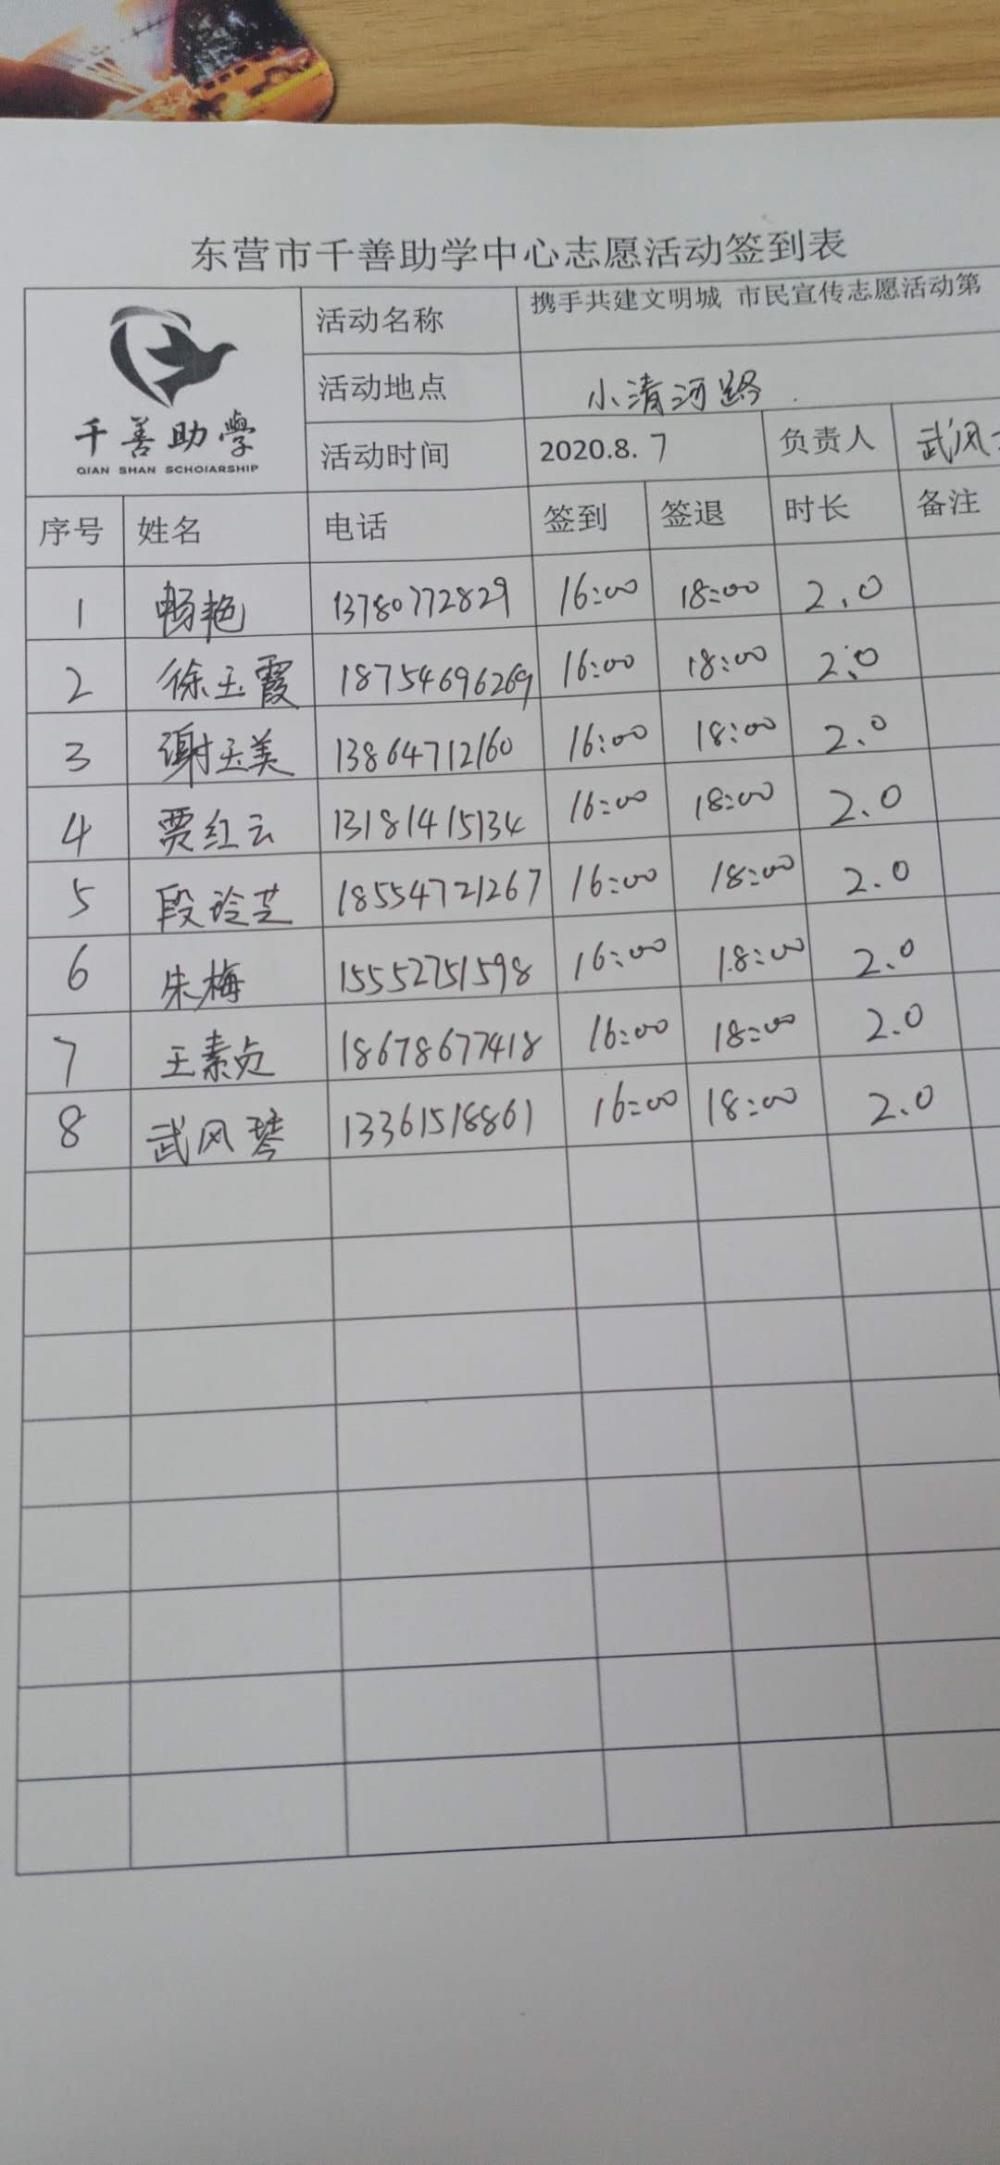 东营市千善助学中心志愿活动签到表
千善助學
QIAN SHAN SCHOlARSHIP
活动名称 携手共建文明城 市民宣传志愿活动第
活动地点 小清河路
活动时间 2020.8.7 负责人 武风
序号 姓名 电话 签到 签退 时长 备注
1 畅艳 13780772829 16:00 18:00 2.0
2 徐玉霞 18754696269 16:00 18:00 2.0
3 谢玉美 13864712160 16:00 18:00 2.0
4 贾红云 13181415134 16:00 18:00 2.0
5 段玲芝 18554721267 16:00 18:00 2.0
6 朱梅 15552751598 16:00 18:00 2.0
7 王素贞 18678677418 16:00 18:00 2.0
8 武风琴 13361518861 16:00 18:00 2.0